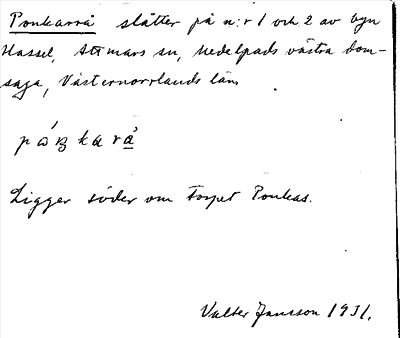 Ponkarrå slåtter på n:r 1 och 2 av byn
Hassel, Attmars sn, Medelpads västra dom-
saga, Västernorrlands län.
Ligger söder om torpet Ponkas.
Valter Jansson 1931.